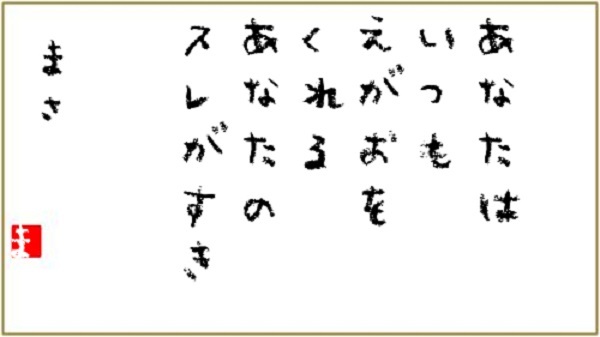 あなたは
いつも
えがおを
くれる
あなたの
スレがすき
まさ
ま